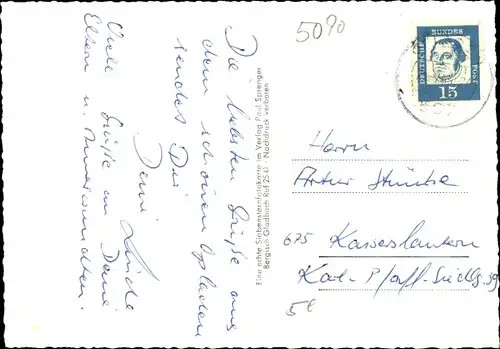 5090
Die liebsten Grüße aus
dem schönen Opladen
sendet Dir
Deine
Viele Grüße an Deine
Eltern u. Anverwandten.
Eine echte Siebensternfotokarte im Verlag Paul Sprenger
Bergisch Gladbach Ruf 2541 / Nachdruck verboten
DEUTSCHE BUNDES POST
15
Herrn
Artur
675 Kaiserslautern
Kal-Pfaff-Siedlg. 39
5€